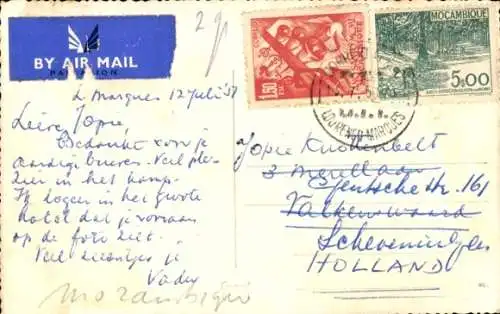 BY AIR MAIL
PAR AVION
MOÇAMBIQUE
1$50
5$00
LOURENÇO MARQUES
L Marques 12 Juli
Lieve Jopie,
Bedankt voor je
aardige brieven. Veel ple-
zier in het kamp.
Ik logeer in het grote
hotel dat je vooraan
op de foto ziet.
Veel zoentjes je
Vader
Jopie
3 Merellaan
Gentsche str. 161
Valkenswaard
Scheveningen
HOLLAND